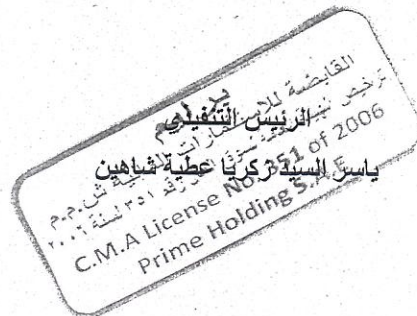 الرئيس التنفيذي
ياسر السيد زكريا عطية شاهين
برايم
القابضة للاستثمارات المالية ش.م.م
ترخيص رقم ٣٥١ لسنة ٢٠٠٦
C.M.A License No. 351 of 2006
Prime Holding S.A.E